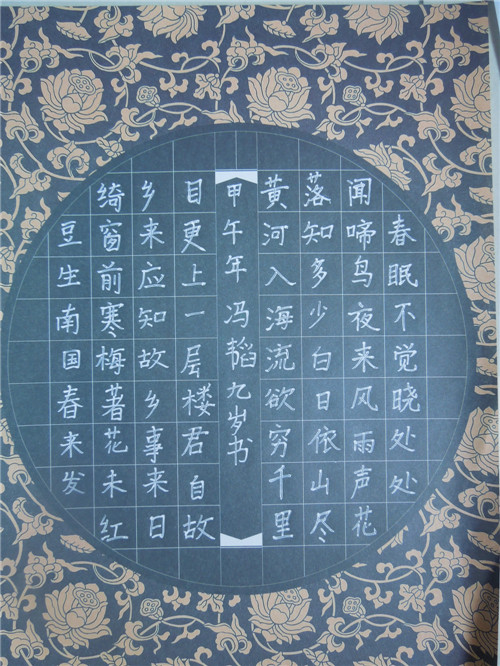 春眠不觉晓处处
闻啼鸟夜来风雨声花
落知多少白日依山尽
黄河入海流欲穷千里
甲午年 冯韬九岁书
目更上一层楼君自故
乡来应知故乡事来日
绮窗前寒梅著花未红
豆生南国春来发